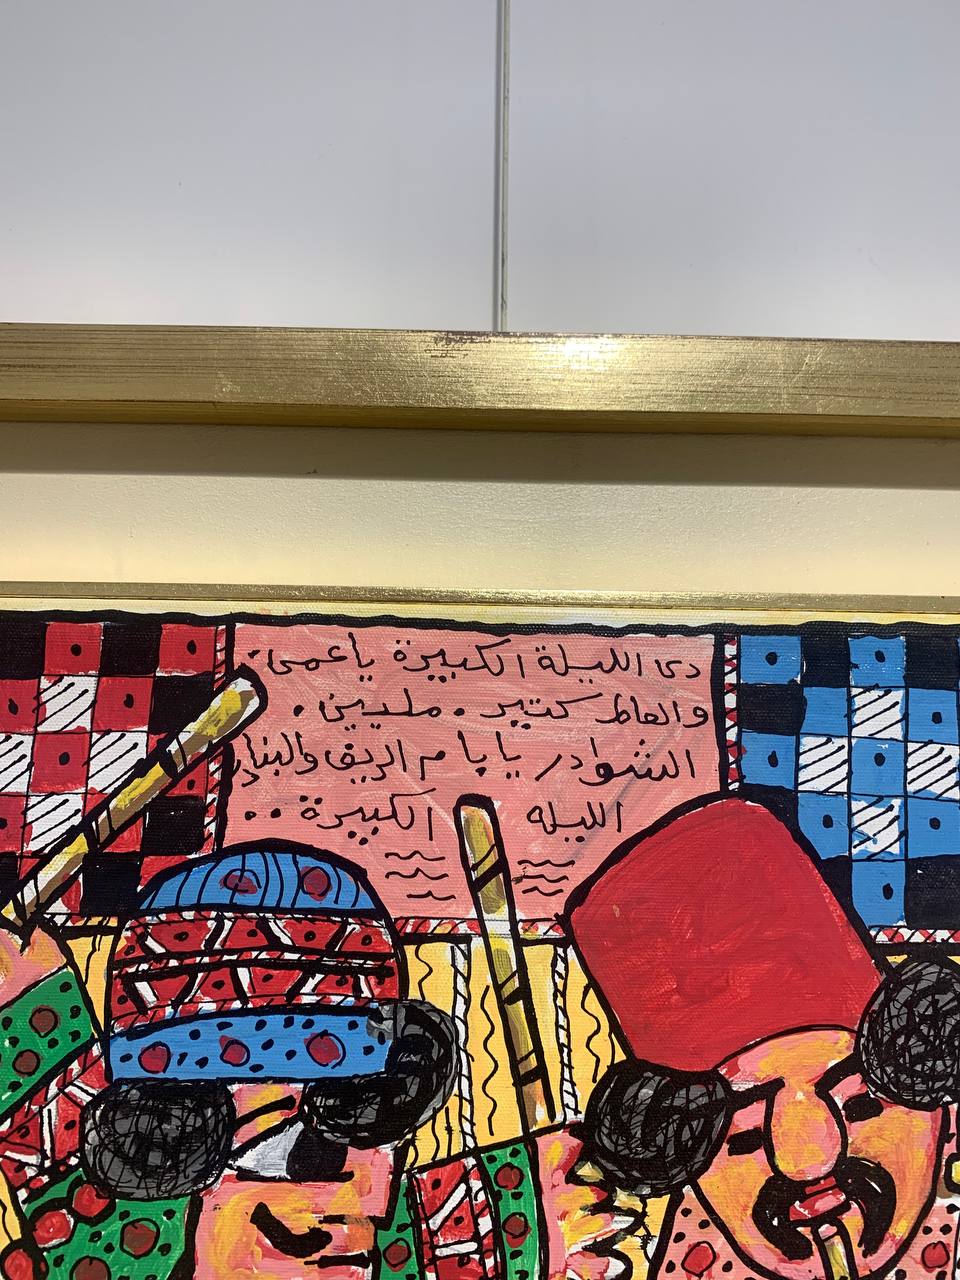 دى الليلة الكبيرة ياعمى.
والعالم كتير. مليين.
الشوادر يابا م الريف والبنادر
الليله الكبيرة..